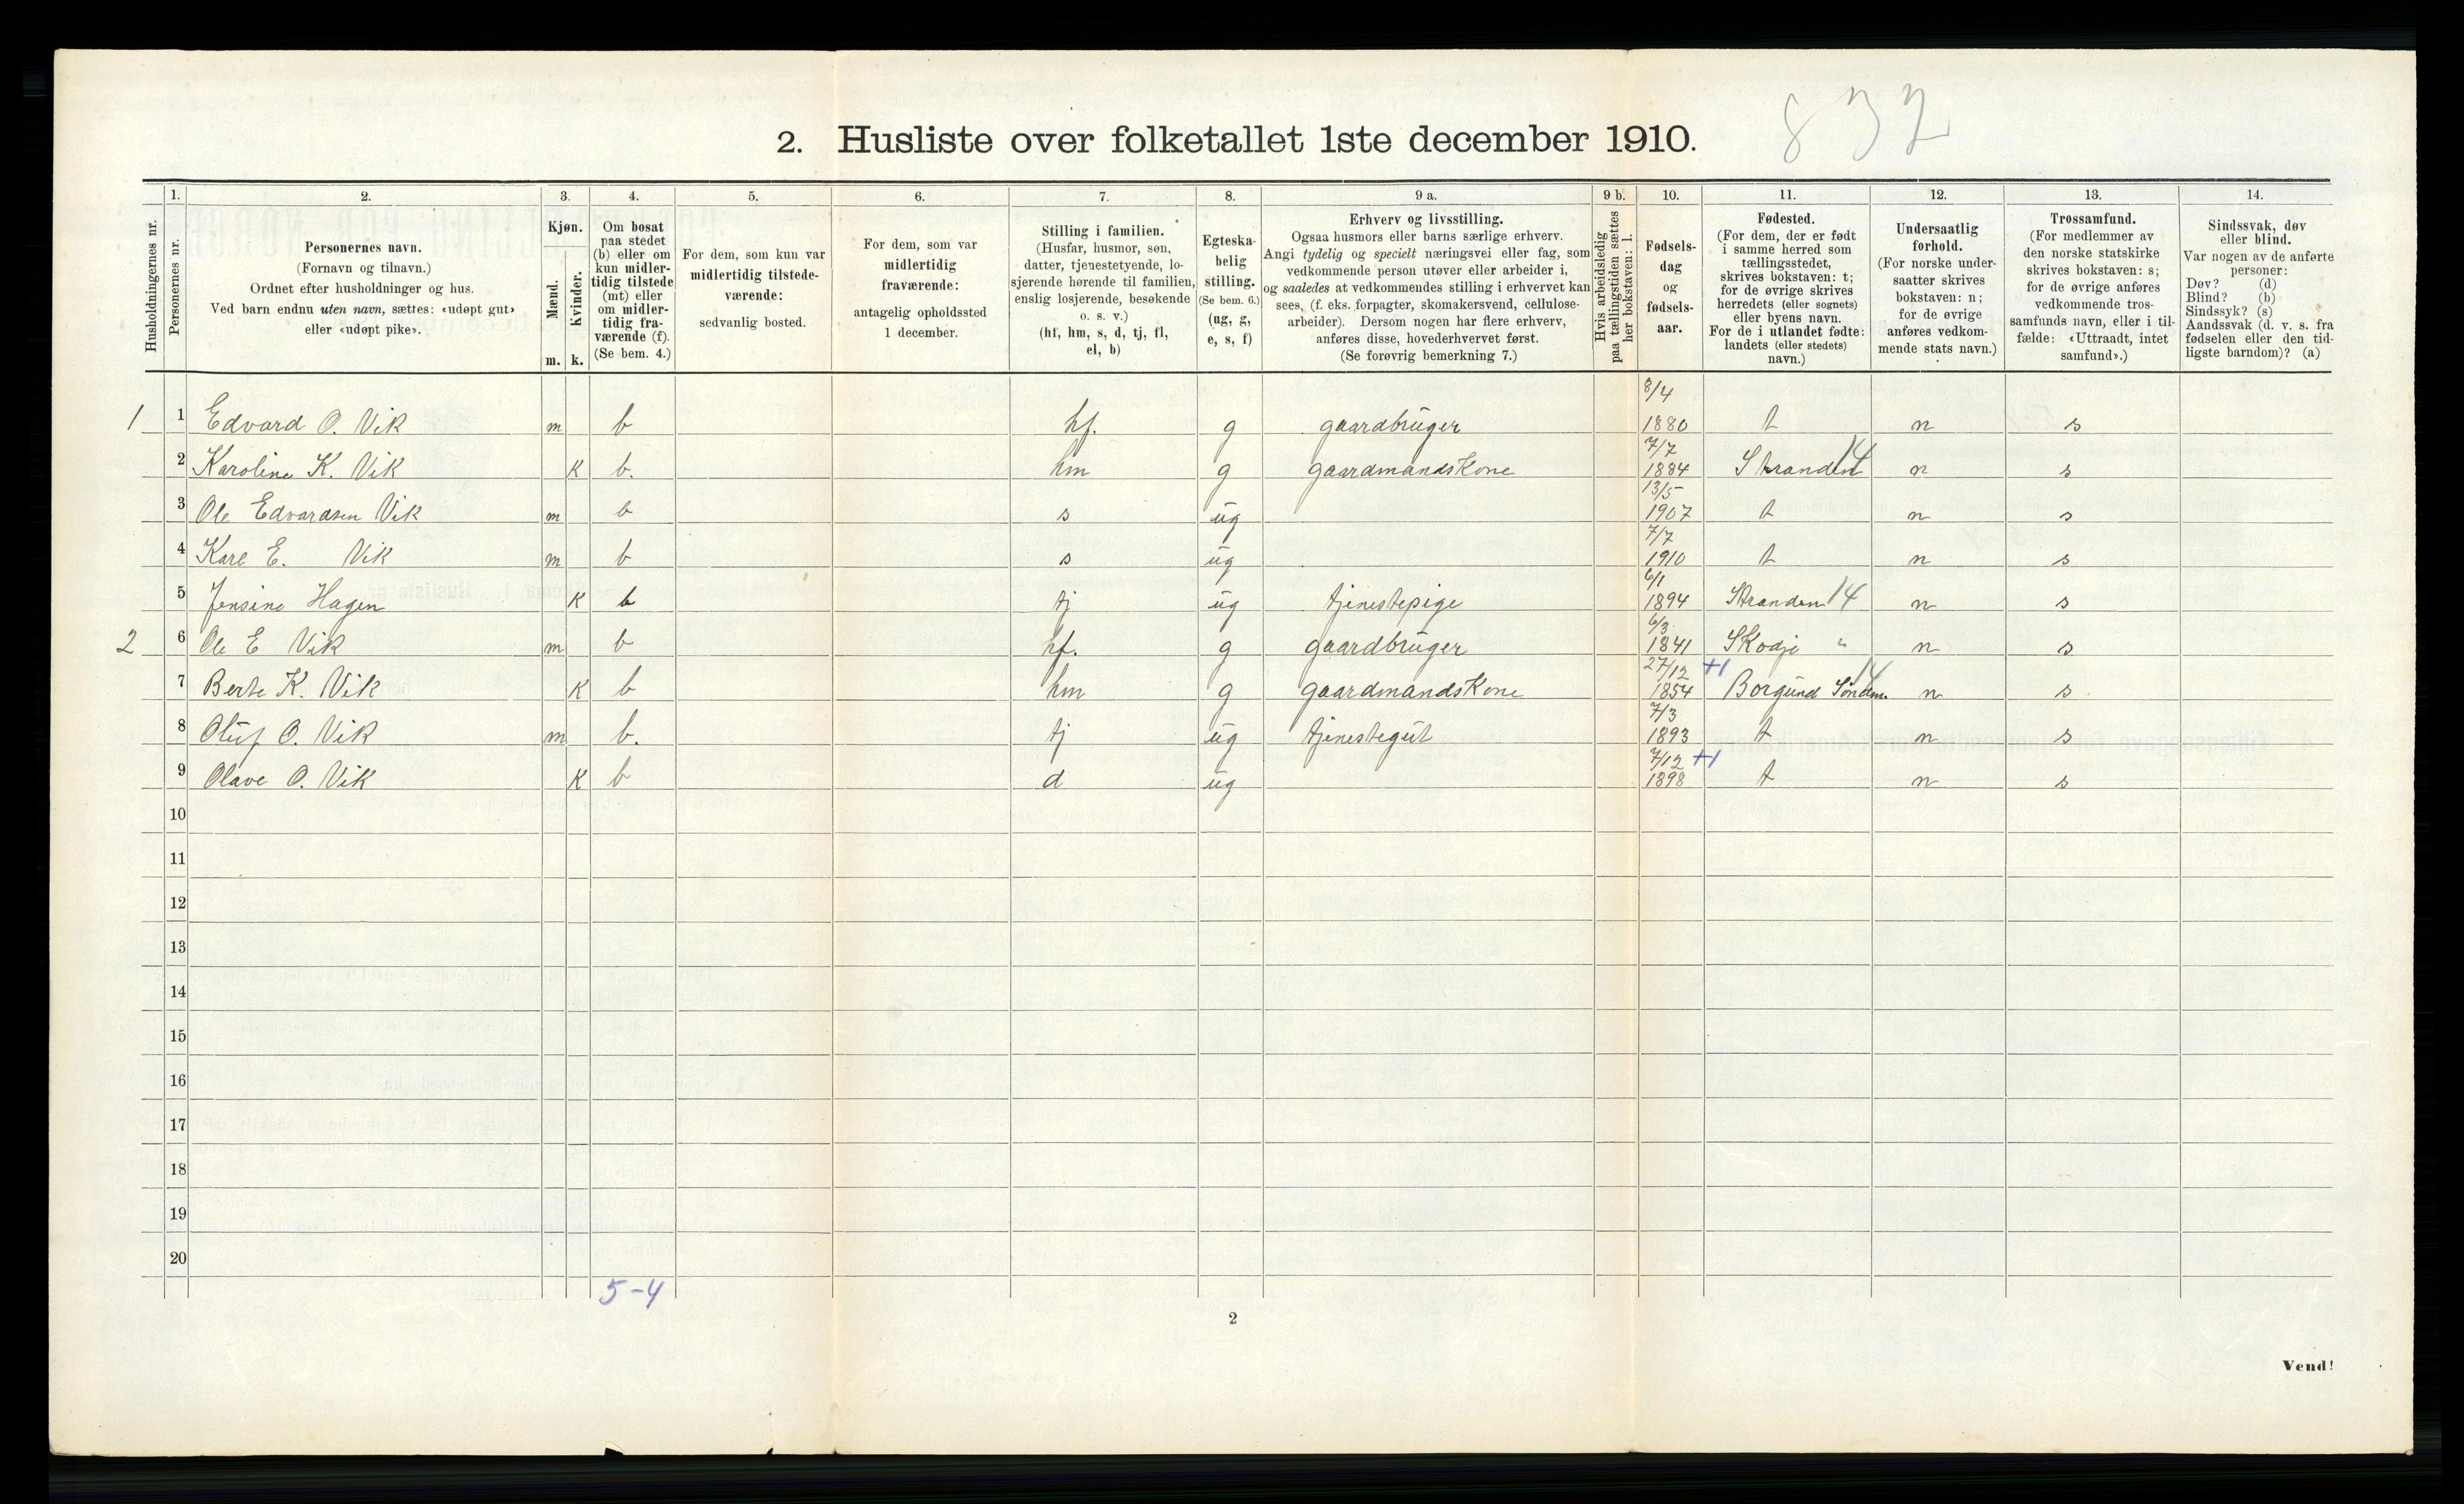 832
2. Husliste over folketallet 1ste december 1910.
Husholdningernes nr.
1.
Personernes nr.
2.
Personernes navn.
(Fornavn og tilnavn.)
Ordnet efter husholdninger og hus.
Ved barn endnu uten navn, sættes: «udøpt gut»
eller «udøpt pike».
3.
Kjøn.
Mænd.
Kvinder.
m. k.
4.
Om bosat
paa stedet
(b) eller om
kun midler-
tidig tilstede
(mt) eller
om midler-
tidig fra-
værende (f).
(Se bem. 4.)
5.
For dem, som kun var
midlertidig tilstede-
værende:
sedvanlig bosted.
6.
For dem, som var
midlertidig
fraværende:
antagelig opholdssted
1 december.
7.
Stilling i familien.
(Husfar, husmor, søn,
datter, tjenestetyende, lo-
sjerende hørende til familien,
enslig losjerende, besøkende
o. s. v.)
(hf, hm, s, d, tj, fl,
el, b)
8.
Egteska-
belig
stilling.
(Se bem. 6.)
(ug, g,
e, s, f)
9 a.
Erhverv og livsstilling.
Ogsaa husmors eller barns særlige erhverv.
Angi tydelig og specielt næringsvei eller fag, som
vedkommende person utøver eller arbeider i,
og saaledes at vedkommendes stilling i erhvervet kan
sees, (f. eks. forpagter, skomakersvend, cellulose-
arbeider). Dersom nogen har flere erhverv,
anføres disse, hovederhvervet først.
(Se forøvrig bemerkning 7.)
9 b.
Hvis arbeidsledig
paa tællingstiden sættes
her bokstaven: l.
10.
Fødsels-
dag
og
fødsels-
aar.
11.
Fødested.
(For dem, der er født
i samme herred som
tællingsstedet,
skrives bokstaven: t;
for de øvrige skrives
herredets (eller sognets)
eller byens navn.
For de i utlandet fødte:
landets (eller stedets)
navn.)
12.
Undersaatlig
forhold.
(For norske under-
saatter skrives
bokstaven: n;
for de øvrige
anføres vedkom-
mende stats navn.)
13.
Trossamfund.
(For medlemmer av
den norske statskirke
skrives bokstaven: s;
for de øvrige anføres
vedkommende tros-
samfunds navn, eller i til-
fælde: «Uttraadt, intet
samfund».)
14.
Sindssvak, døv
eller blind.
Var nogen av de anførte
personer:
Døv? (d)
Blind? (b)
Sindssyk? (s)
Aandssvak (d. v. s. fra
fødselen eller den tid-
ligste barndom)? (a)
1 1 Edvard O. Vik m b hf. g gaardbruger 8/4 1880 t n s
2 Karoline K. Vik K b. hm g gaardmandsKone 7/7 1884 Stranden 14 n s
3 Ole Edvardsen Vik m b s ug 13/5 1907 t n s
4 Karl E. Vik m b s ug 7/7 1910 t n s
5 Jensine Hagen K b tj ug tjenestepige 6/1 1894 Stranden 14 n s
2 6 Ole E Vik m b hf. g gaardbruger 6/3 1841 Skodje " n s
7 Berte K. Vik K b hm g gaardmandsKone 27/12 +1 1854 Borgund Søndm. 14 n s
8 Oluf O. Vik m b. tj ug tjenestegut 7/3 1893 t n s
9 Olave O. Vik K b d ug 7/12 +1 1898 t n s
10
11
12
13
14
15
16
17
18
19
20
5-4
2
Vend!